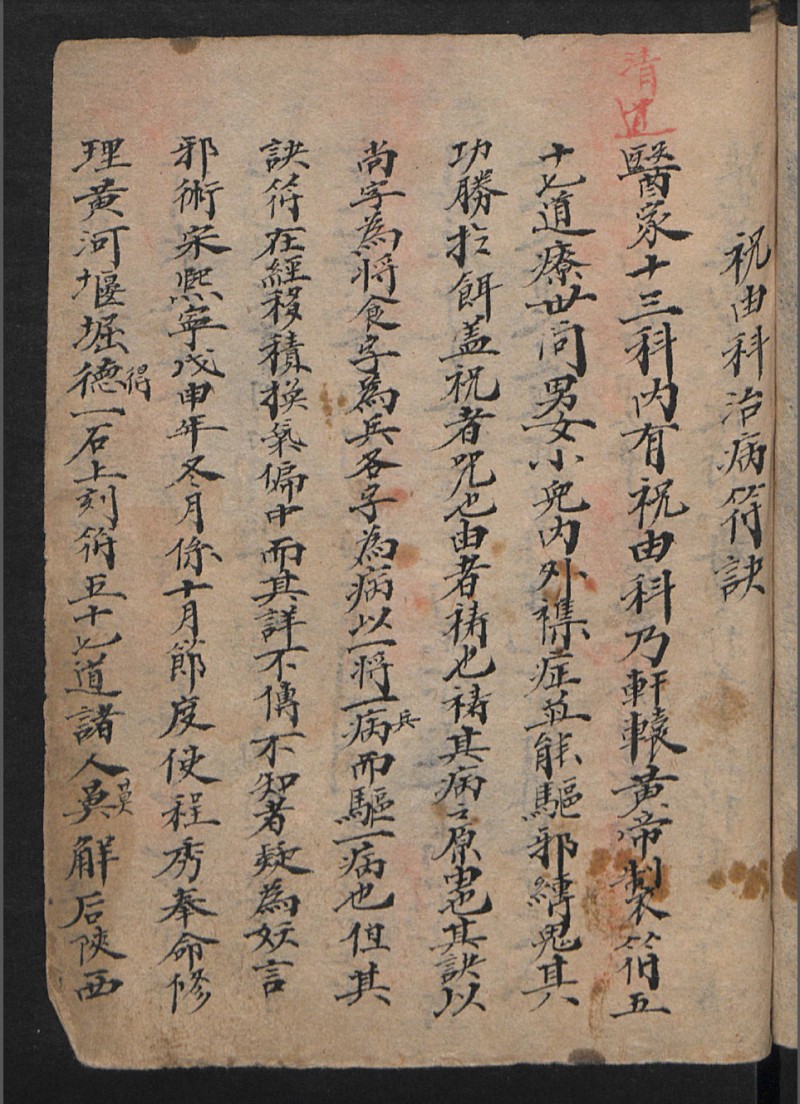 祝由科治病符訣
清 
醫家十三科內有祝由科乃軒轅黃帝製符五
十七道療世同男女小兒內外襍症並能驅邪縛鬼其
功勝於餌盖祝者咒也由者禱也禱其病之原由也其訣以
尚字為將食字為兵各字為病以一將一病兵而驅一病也但其
訣符在經移積換氣偏中而其詳不傳不知者疑為妖言
邪術宋熙寧戊申年冬月係十月節度使程秀奉命修
理黃河堰堀德得一石上刻符五十七道諸人莫莫解后陝西